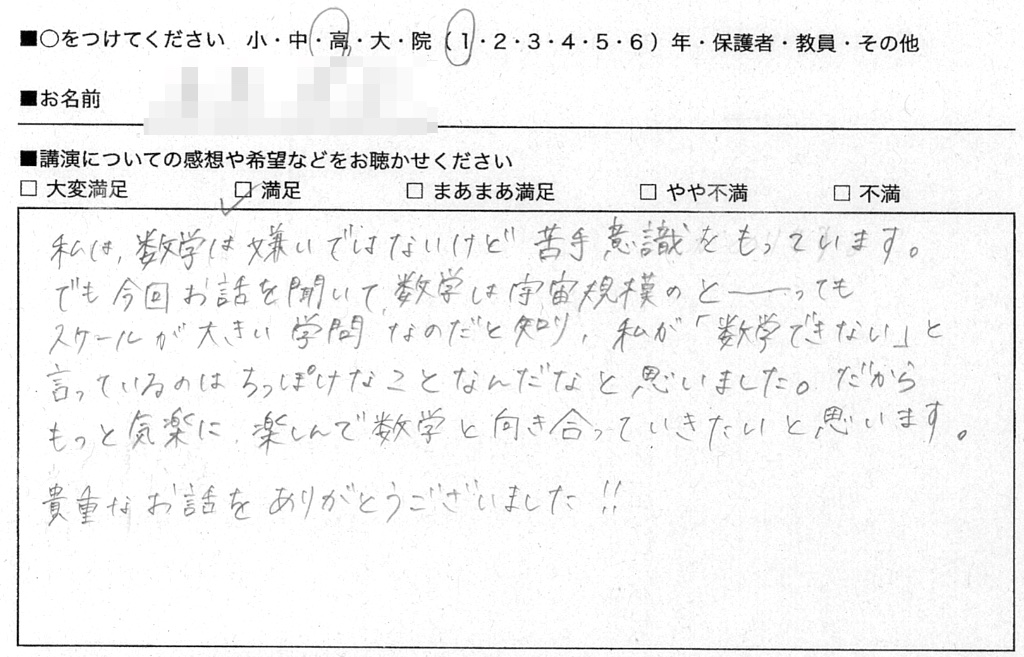 ■○をつけてください 小・中・高・大・院（1・2・3・4・5・6）年・保護者・教員・その他
■お名前
■講演についての感想や希望などをお聴かせください
□ 大変満足 □ 満足 □ まあまあ満足 □ やや不満 □ 不満
私は、数学は嫌いではないけど 苦手意識をもっています。
でも今回お話を聞いて、数学は宇宙規模のと――っても
スケールが大きい学問なのだと知り、私が「数学できない」と
言っているのはちっぽけなことなんだなと思いました。だから
もっと気楽に、楽しんで数学と向き合っていきたいと思います。
貴重なお話をありがとうございました!!